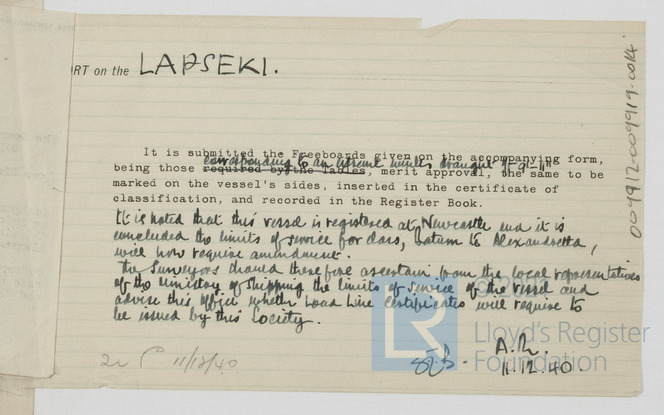 RT on the LAPSEKI.
004912-009919-0014
It is submitted the Freeboards given on the accompanying form,
corresponding to an extreme draught 9'-11"
being those required by the Tables, merit approval, the same to be
marked on the vessel's sides, inserted in the certificate of
classification, and recorded in the Register Book.
It is noted that this vessel is registered at Newcastle and it is
concluded the limits of service for class, Batum to Alexandretta,
will now require amendment.
The Surveyors should therefore ascertain from the local representatives
of the Ministry of Shipping the limits of service of the vessel and
advise this office whether Load Line Certificates will require to
be issued by this Society.
11/12/40
11.12.40.
LR
Lloyd's Register
Foundation